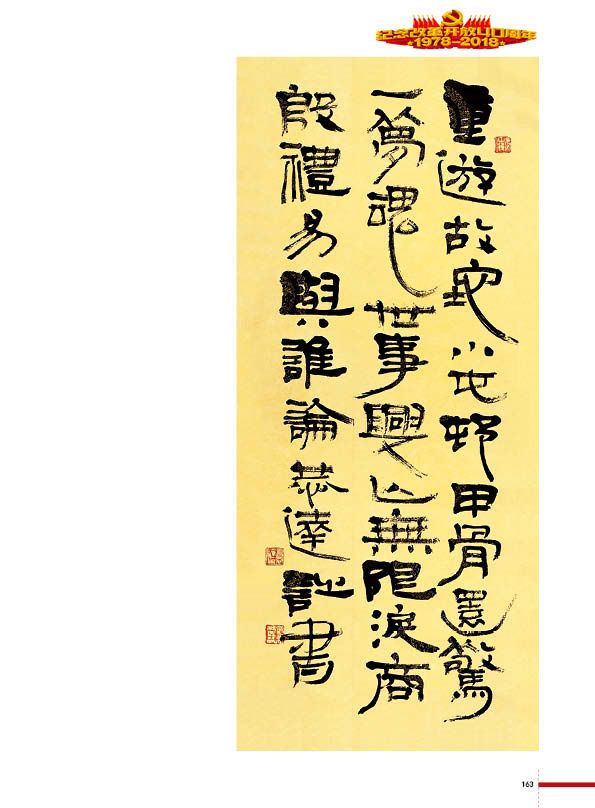 纪念改革开放40周年
★1978-2018★
重遊故小屯邨甲骨還驚
一夢魂世事興亡無限淚商
殷禮易與誰論恭達書
163